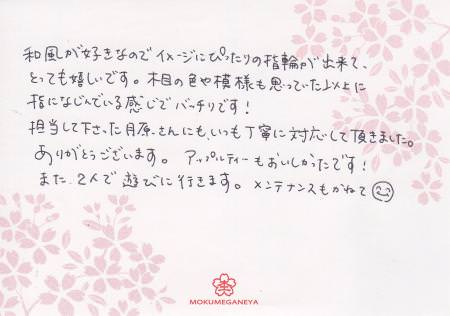 和風が好きなのでイメージにぴったりの指輪が出来て、
とっても嬉しいです。木目の色や模様も思っていた以上に
指になじんでいる感じでバッチリです！
担当して下さった月原さんにも、いつも丁寧に対応して頂きました。
ありがとうございます。アップルティーもおいしかったです！
また、2人で遊びに行きます。メンテナンスもかねて
MOKUMEGANEYA